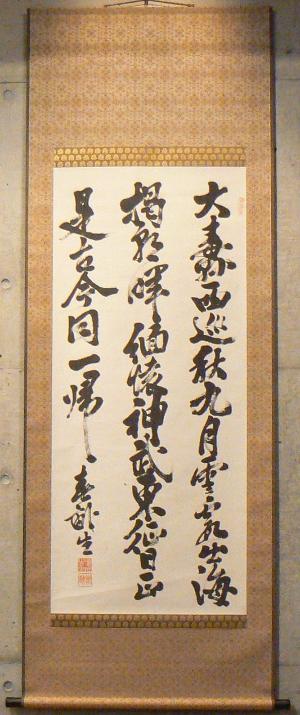 大纛西巡秋九月雲出海
朝暉緬懐神武東征日正
是古今同一帰
春畝生